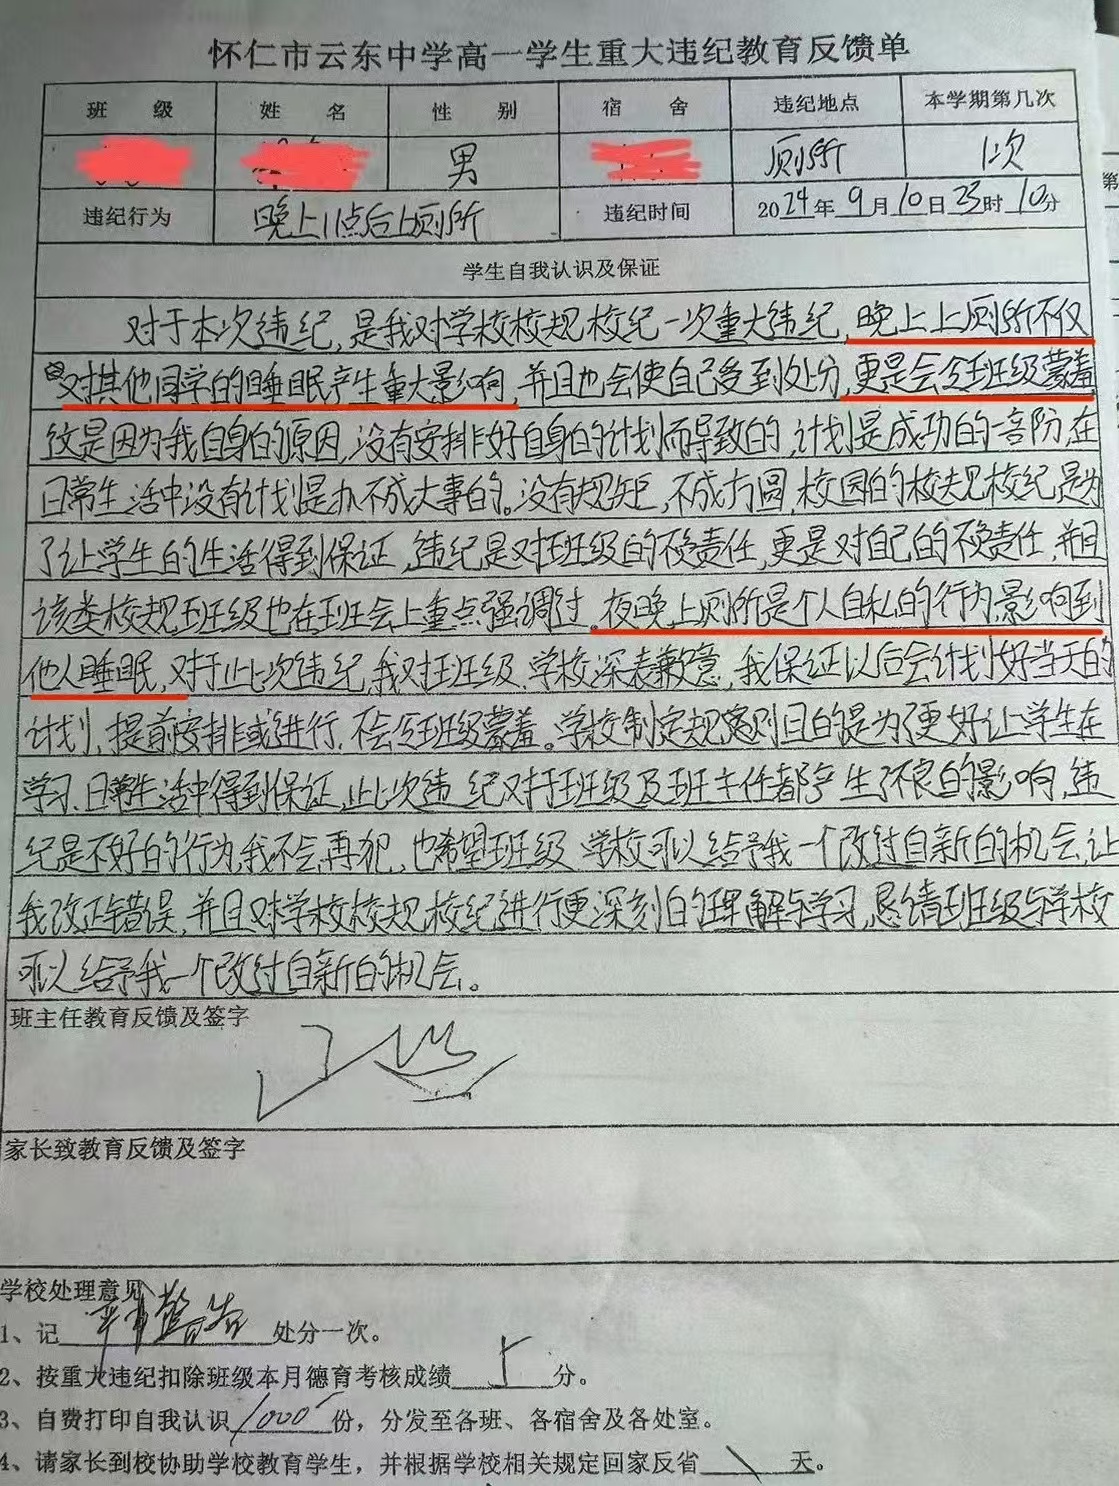 怀仁市云东中学高一学生重大违纪教育反馈单
班 级 姓 名 性 别 宿 舍 违纪地点 本学期第几次
男 厕所 1次
违纪行为 晚上11点后上厕所 违纪时间 2024年9月10日23时10分
学生自我认识及保证
对于本次违纪,是我对学校校规校纪一次重大违纪,晚上上厕所不仅
对其他同学的睡眠产生重大影响,并且也会使自己受到处分,更是会令班级蒙羞
这是因为我自身的原因,没有安排好自身的计划而导致的,计划是成功的一部分,在
日常生活中没有计划是办不成大事的。没有规矩,不成方圆,校园的校规校纪是为
了让学生的生活得到保证,违纪是对班级的不负责任,更是对自己的不负责任,并且
该类校规班级也在班会上重点强调过,夜晚上厕所是个人自私的行为,影响到
他人睡眠,对于此次违纪,我对班级、学校深表歉意,我保证以后会计划好当天的
计划,提前安排或进行,不会令班级蒙羞。学校制定规则目的是为了更好让学生在
学习、日常生活中得到保证,此次违纪对于班级及班主任都产生了不良的影响,违
纪是不好的行为,我不会再犯,也希望班级、学校可以给予我一个改过自新的机会,让
我改正错误,并且对学校校规校纪进行更深刻的理解与学习,恳请班级与学校
可以给予我一个改过自新的机会。
班主任教育反馈及签字
家长致教育反馈及签字
学校处理意见
1、记 严重警告 处分一次。
2、按重大违纪扣除班级本月德育考核成绩 5 分。
3、自费打印自我认识 1000 份,分发至各班、各宿舍及各处室。
4、请家长到校协助学校教育学生,并根据学校相关规定回家反省 \ 天。
第